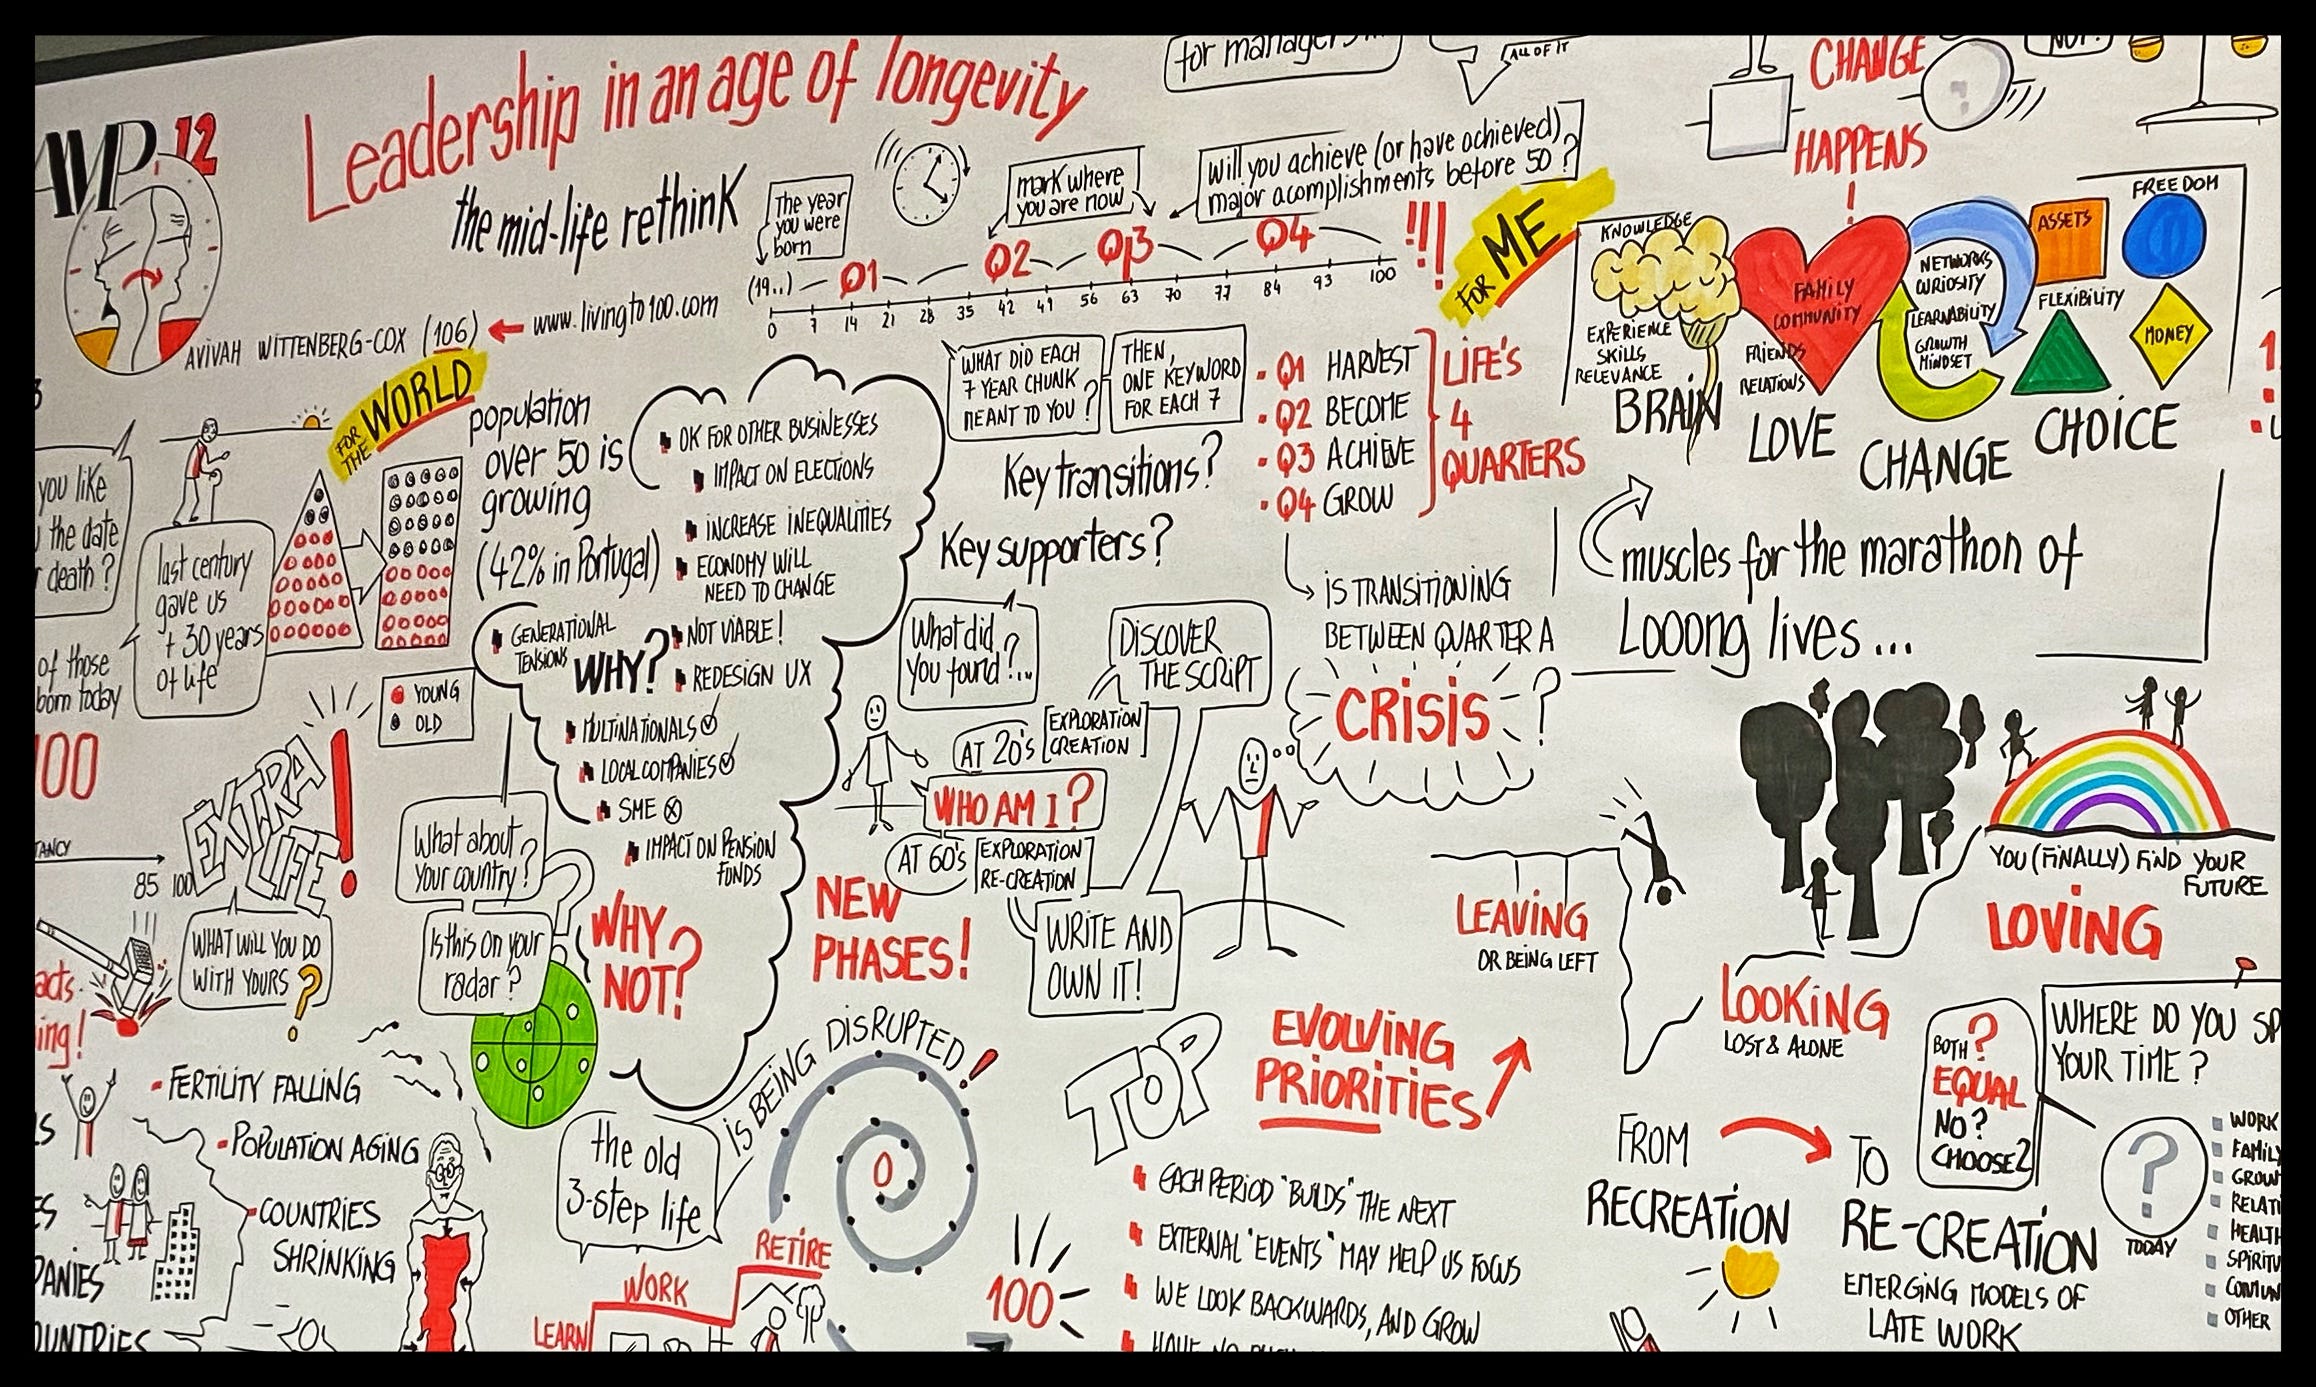 for managers
ALL OF IT
CHANGE
HAPPENS
!
NOT!
AMP.12
Leadership in an age of longevity
the mid-life rethink
AVIVAH WITTENBERG-COX (106)
www.livingto100.com
The year
you were
born
mark where
you are now
Will you achieve (or have achieved)
major acomplishments before 50?
!!!
(19..)
Q1
Q2
Q3
Q4
0 7 14 21 28 35 42 49 56 63 70 77 84 93 100
FOR ME
WHAT DID EACH
7 YEAR CHUNK
MEANT TO YOU?
THEN,
ONE KEYWORD
FOR EACH 7
Key transitions?
Key supporters?
Q1 HARVEST
Q2 BECOME
Q3 ACHIEVE
Q4 GROW
LIFE'S
4
QUARTERS
IS TRANSITIONING
BETWEEN QUARTER A
CRISIS
?
KNOWLEDGE
EXPERIENCE
SKILLS
RELEVANCE
BRAIN
FAMILY
COMMUNITY
FRIENDS
RELATIONS
LOVE
NETWORKS
CURIOSITY
LEARNABILITY
GROWTH
MINDSET
CHANGE
ASSETS
FREEDOM
FLEXIBILITY
MONEY
CHOICE
muscles for the marathon of
Looong lives...
FOR
THE
WORLD
population
over 50 is
growing
(42% in Portugal)
you like
the date
death?
last century
gave us
+ 30 years
of life
of those
born today
100
YOUNG
OLD
OK FOR OTHER BUSINESSES
IMPACT ON ELECTIONS
INCREASE INEQUALITIES
ECONOMY WILL
NEED TO CHANGE
GENERATIONAL
TENSIONS
WHY?
NOT VIABLE!
REDESIGN UX
MULTINATIONALS
LOCAL COMPANIES
SME
IMPACT ON PENSION
FUNDS
WHY
NOT?
EXTRA
LIFE!
85 100
WHAT WILL YOU DO
WITH YOURS?
What about
your country?
Is this on your
radar?
?
What did
you found?...
DISCOVER
THE SCRIPT
AT 20's
EXPLORATION
CREATION
WHO AM I?
AT 60's
EXPLORATION
RE-CREATION
NEW
PHASES!
WRITE AND
OWN IT!
LEAVING
OR BEING LEFT
LOOKING
LOST & ALONE
YOU (FINALLY) FIND YOUR
FUTURE
LOVING
FERTILITY FALLING
POPULATION AGING
COUNTRIES
SHRINKING
the old
3-step life
IS BEING DISRUPTED!
LEARN
WORK
RETIRE
0
100
TOP
EVOLVING
PRIORITIES
EACH PERIOD "BUILDS" THE NEXT
EXTERNAL "EVENTS" MAY HELP US FOCUS
WE LOOK BACKWARDS, AND GROW
FROM
RECREATION
TO
RE-CREATION
EMERGING MODELS OF
LATE WORK
?
BOTH
EQUAL
NO?
CHOOSE?
WHERE DO YOU SP
YOUR TIME?
?
TODAY
WORK
FAMILY
GROW
RELATI
HEALTH
SPIRITU
COMUN
OTHER